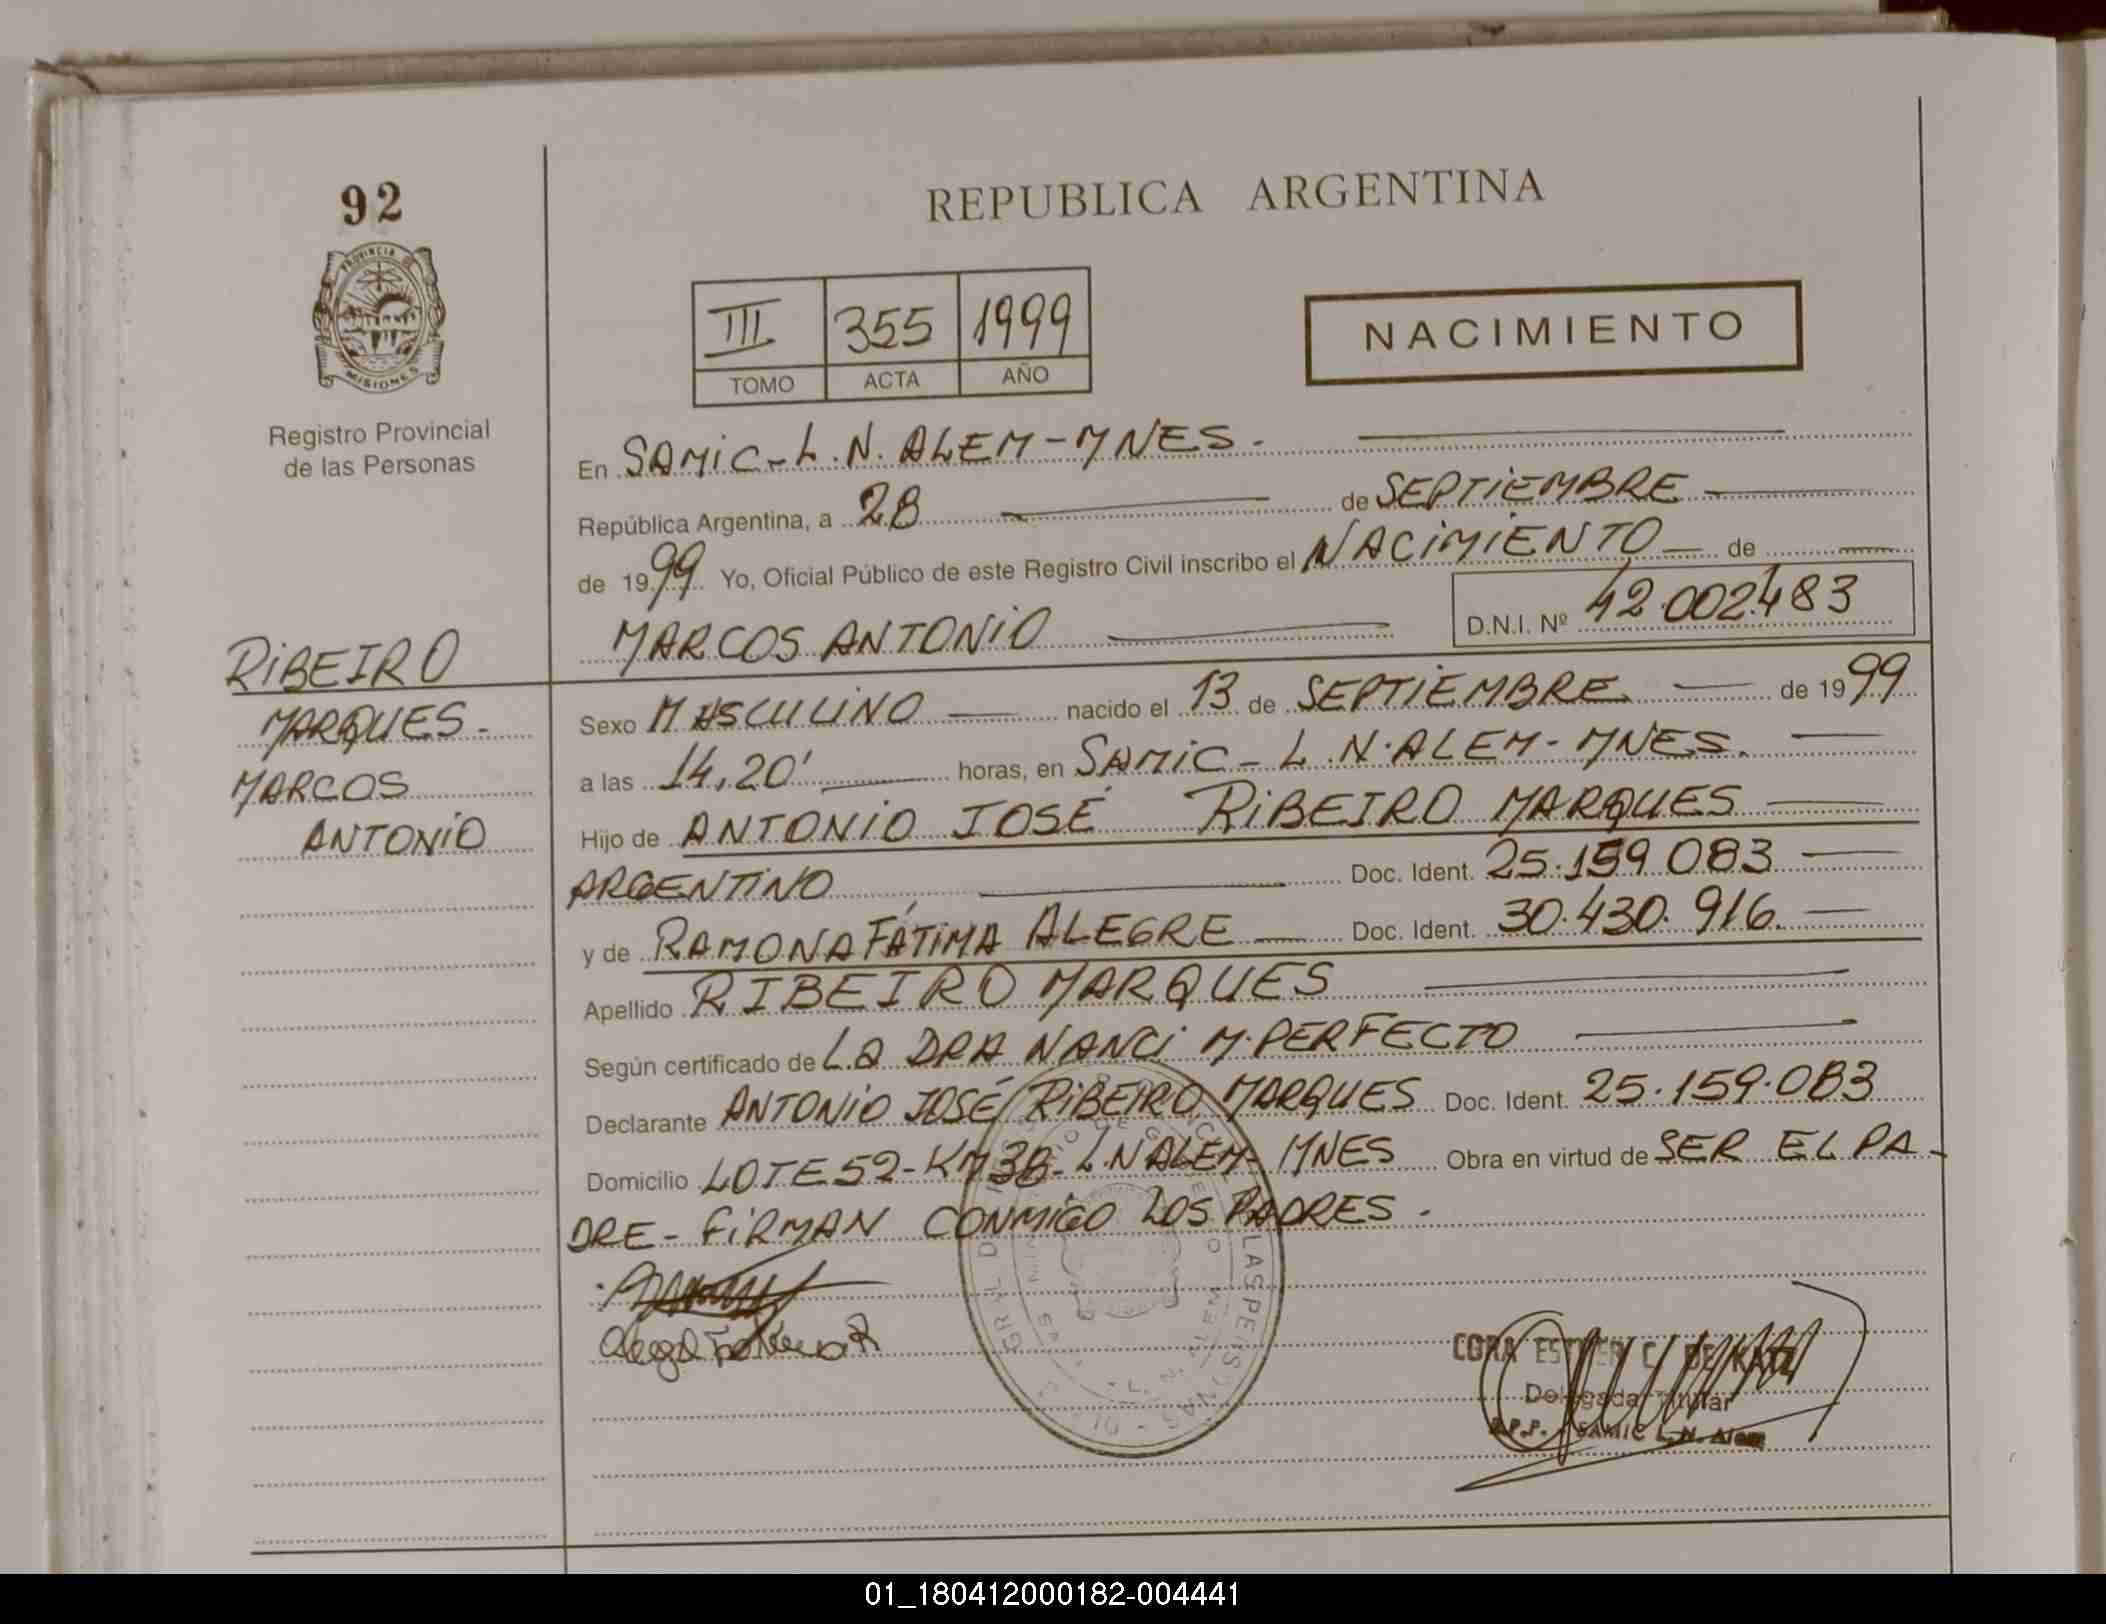 92
REPUBLICA ARGENTINA
PROVINCIA DE
MISIONES
III 355 1999
TOMO ACTA AÑO
NACIMIENTO
Registro Provincial
de las Personas
En SAMIC - L.N. ALEM - MNES.
República Argentina, a 28 de SEPTIEMBRE
de 1999 Yo, Oficial Público de este Registro Civil inscribo el NACIMIENTO de
MARCOS ANTONIO D.N.I. Nº 42.002.483
RIBEIRO
MARQUES -
MARCOS
ANTONIO
Sexo MASCULINO nacido el 13 de SEPTIEMBRE de 1999
a las 14,20' horas, en SAMIC - L.N. ALEM - MNES.
Hijo de ANTONIO JOSÉ RIBEIRO MARQUES
ARGENTINO Doc. Ident. 25.159.083
y de RAMONA FÁTIMA ALEGRE Doc. Ident. 30.430.916.
Apellido RIBEIRO MARQUES
Según certificado de LA DRA NANCI M. PERFECTO
Declarante ANTONIO JOSÉ RIBEIRO MARQUES Doc. Ident. 25.159.083
Domicilio LOTE 52 - KM 38 - L.N ALEM - MNES Obra en virtud de SER EL PA-
DRE - FIRMAN CONMIGO LOS PADRES.
CORA ESTHER C. DE KATZ
Delegada Titular
R.P.P. - SAMIC L.N. Alem
01_180412000182-004441